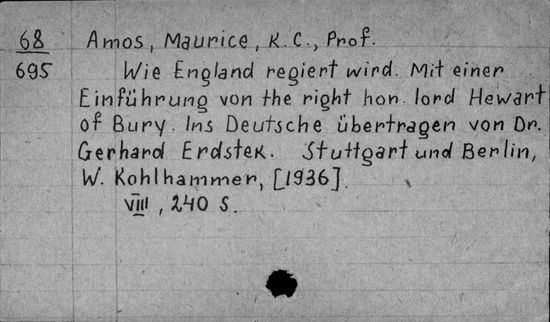 68 Amos, Maurice, K.C., Prof.
695 Wie England regiert wird. Mit einer
Einführung von the right hon. lord Hewart
of Bury. Ins Deutsche übertragen von Dr.
Gerhard Erdstek. Stuttgart und Berlin,
W. Kohlhammer, [1936].
VIII, 240 S.